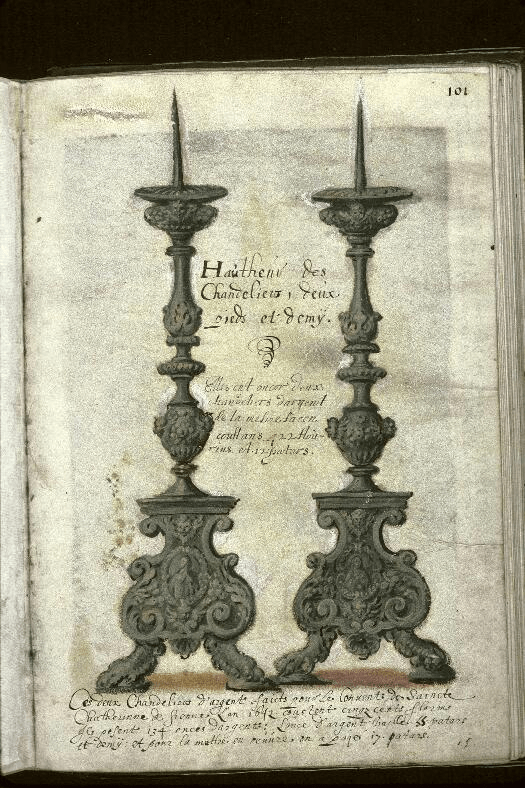 101
Hautheur des
Chandeliers, deux
pieds et demy.
Elles ont encor deux
chandeliers d'argent
de la mesme facon
coustans 422 flou-
rins et 12 patars.
Ces deux Chandeliers d'argent faicts pour le Convente de Saincte
Catherienne de Sienne, en 1642 coustent cinq cents florins
pesent 134 onces d'argent; l'once d'argent 55 patars
et demy: et pour la mettre en oeuvre on a payé 17 patars.